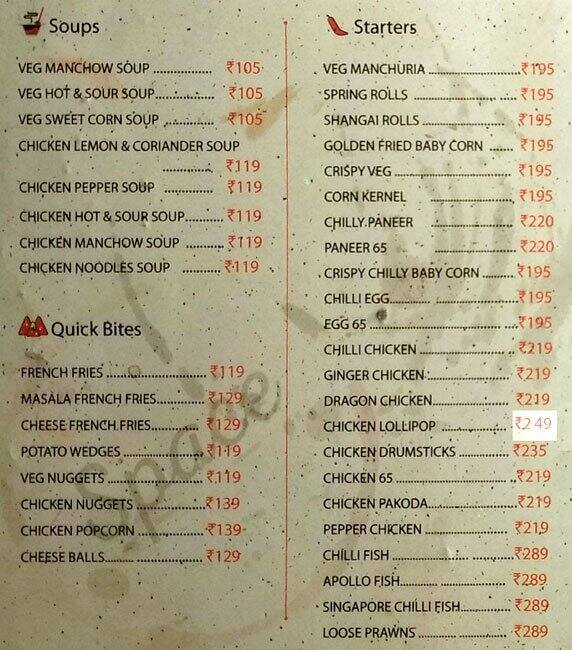 Soups
VEG MANCHOW SOUP ............... ₹105
VEG HOT & SOUR SOUP............... ₹105
VEG SWEET CORN SOUP ............. ₹105
CHICKEN LEMON & CORIANDER SOUP
............. ₹119
CHICKEN PEPPER SOUP ............. ₹119
CHICKEN HOT & SOUR SOUP.......... ₹119
CHICKEN MANCHOW SOUP .......... ₹119
CHICKEN NOODLES SOUP .......... ₹119
Quick Bites
FRENCH FRIES ......................... ₹119
MASALA FRENCH FRIES............. ₹129
CHEESE FRENCH FRIES............... ₹129
POTATO WEDGES ..................... ₹119
VEG NUGGETS ......................... ₹119
CHICKEN NUGGETS .................. ₹139
CHICKEN POPCORN .................. ₹139
CHEESE BALLS......................... ₹129
Starters
VEG MANCHURIA ....................... ₹195
SPRING ROLLS .......................... ₹195
SHANGAI ROLLS ....................... ₹195
GOLDEN FRIED BABY CORN ...... ₹195
CRISPY VEG ............................. ₹195
CORN KERNEL .................. ₹195
CHILLY PANEER .................. ₹220
PANEER 65 .................. ₹220
CRISPY CHILLY BABY CORN ........ ₹195
CHILLI EGG............................. ₹195
EGG 65 .................................. ₹195
CHILLI CHICKEN ....................... ₹219
GINGER CHICKEN ..................... ₹219
DRAGON CHICKEN..................... ₹219
CHICKEN LOLLIPOP .................. ₹249
CHICKEN DRUMSTICKS ............. ₹235
CHICKEN 65 ............................ ₹219
CHICKEN PAKODA..................... ₹219
PEPPER CHICKEN ..................... ₹219
CHILLI FISH ............................ ₹289
APOLLO FISH........................... ₹289
SINGAPORE CHILLI FISH............. ₹289
LOOSE PRAWNS ....................... ₹289